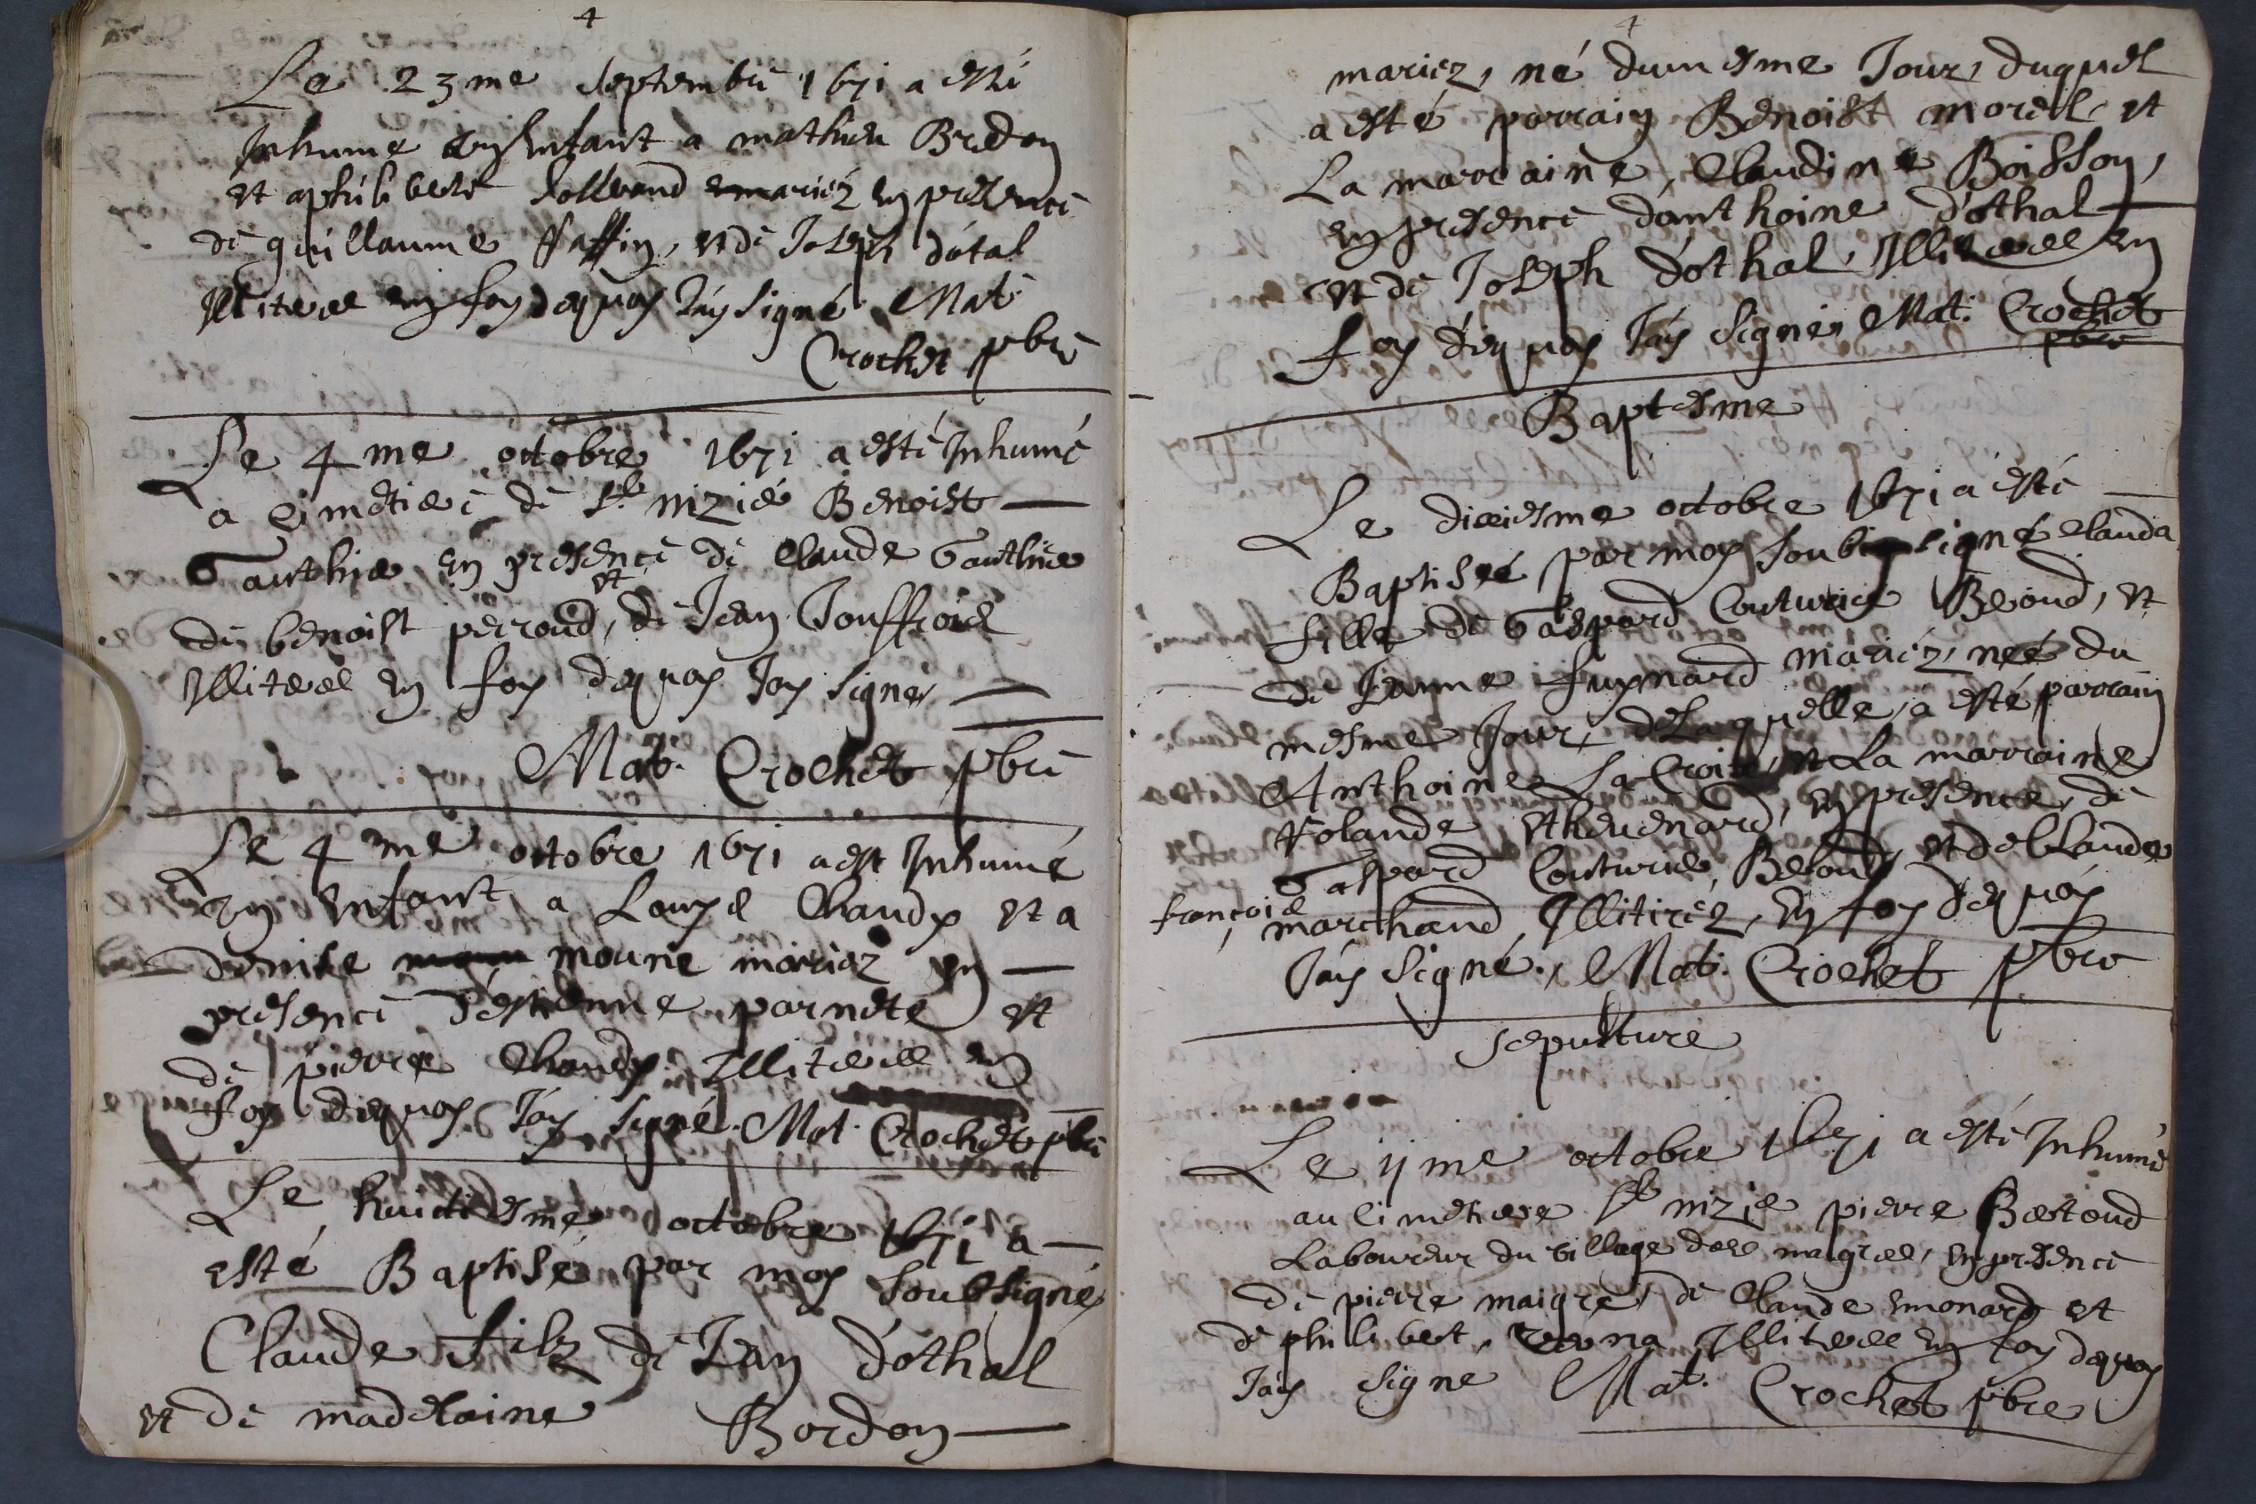 4
Le 23me septembre 1671 a esté
Inhumé un enfant a mathieu Bredon
et a philiberte Sollerand mariéz en presence
de guillaume ffaffin, et de Joseph dótal
Illiteréé en foy dequoy J'ay signé Mat.
Crochet pbre
Le 4me octobre 1671 a esté Inhumé
a cimetiere de St nizié Benoist
Gauthie en presence de Claude Gauthie
de benoist perroud, et de Jean Jouffroid
Illiteréé en foy dequoy J'ay signé
Mat. Crochet pbre
Le 4me octobre 1671 a est Inhumé
un enfant a Louys Chaudy et a
denise moune mariez en
presence d'estienne parnete et
de pierre Chaudy Illiteréé en
foy dequoy J'ay signé. Mat. Crochet pbre
Le huictiesme octobre 1671 a
esté Baptisé par moy soubsigné
Claude filz de Jean dóthal
et de madelaine Bordon
4
mariez, né du mesme Jour, duquel
a esté parrain Benoist morel, et
La marraine, Claudine Boisson,
en presence d'anthoine dóthal
et de Joseph dóthal, Illiteréé en
foy dequoy J'ay signé, Mat. Crochet
pbre
Baptesme
Le dixiesme octobre 1671 a esté
Baptisée par moy soubsigné Clauda
fille de Gaspard Couturier Beloud, et
de Jeanne fuynard mariéz, née du
mesme Jour, de laquelle, a esté parrain
Anthoine La Croix, et La marraine
Volande, theuenard, en presence, de
Gaspard Couturié, Beloud, et de Claude
françois marchand, Illitiréz, en foy dequoy
J'ay signé., Mat. Crochet pbre
sepulture
Le 11me octobre 1671 a esté Inhumé
au cimetiere St nizié pierre Bertoud
Laboureur du village des maigres, en presence
de pierre maigre, de Claude monard et
de philibert, Illiteréé en foy dequoy
J'ay signe Mat. Crochet pbre